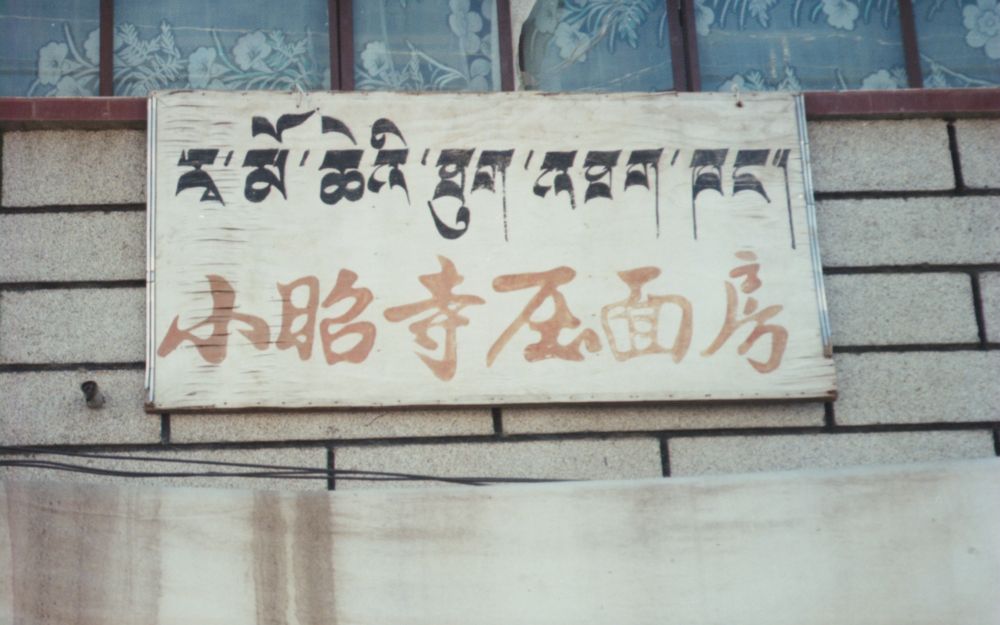 རྭ་མོ་ཆེའི་ཐུག་འཐག་ཁང་།
小昭寺压面房